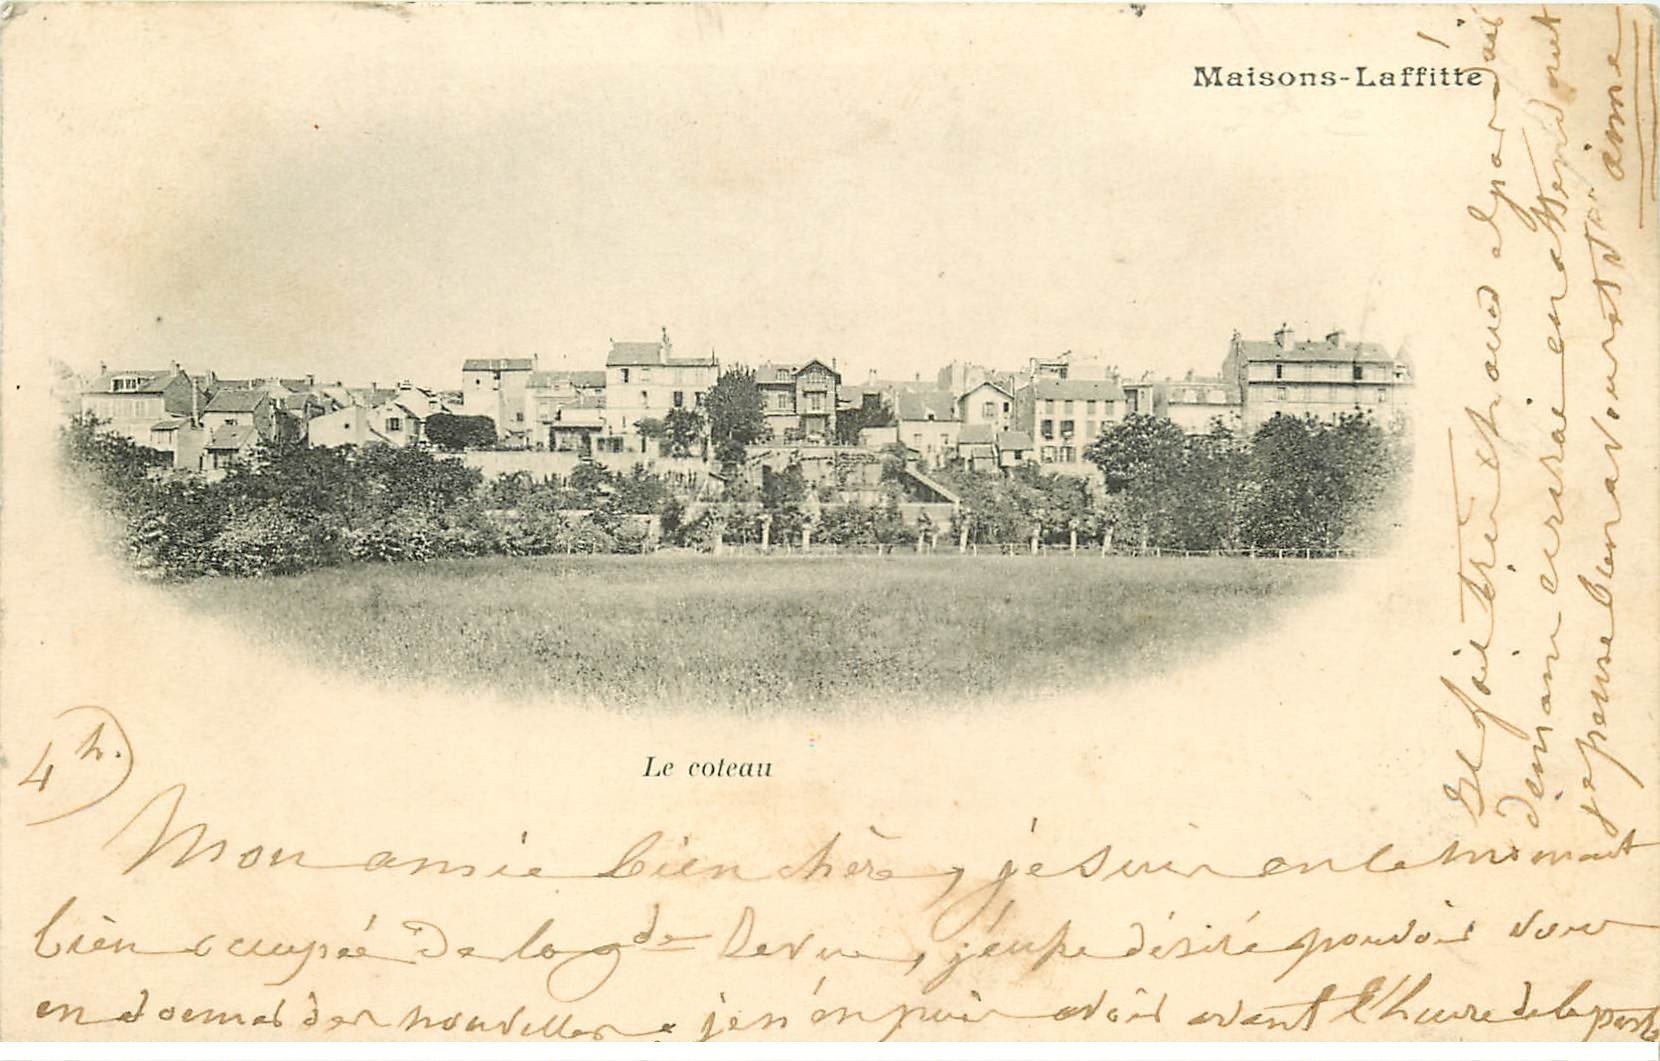 Maisons-Laffitte
Le coteau
4 h.
Mon amie bien chère, je suis en le moment
bien occupée de la gde Revue, j'eupe désiré pouvoir vous
en donner des nouvelles, je n'en puis avoir avant l'heure de la poste
Il fait très chaud par
demain en attendant
je pense bien à vous et vs aime